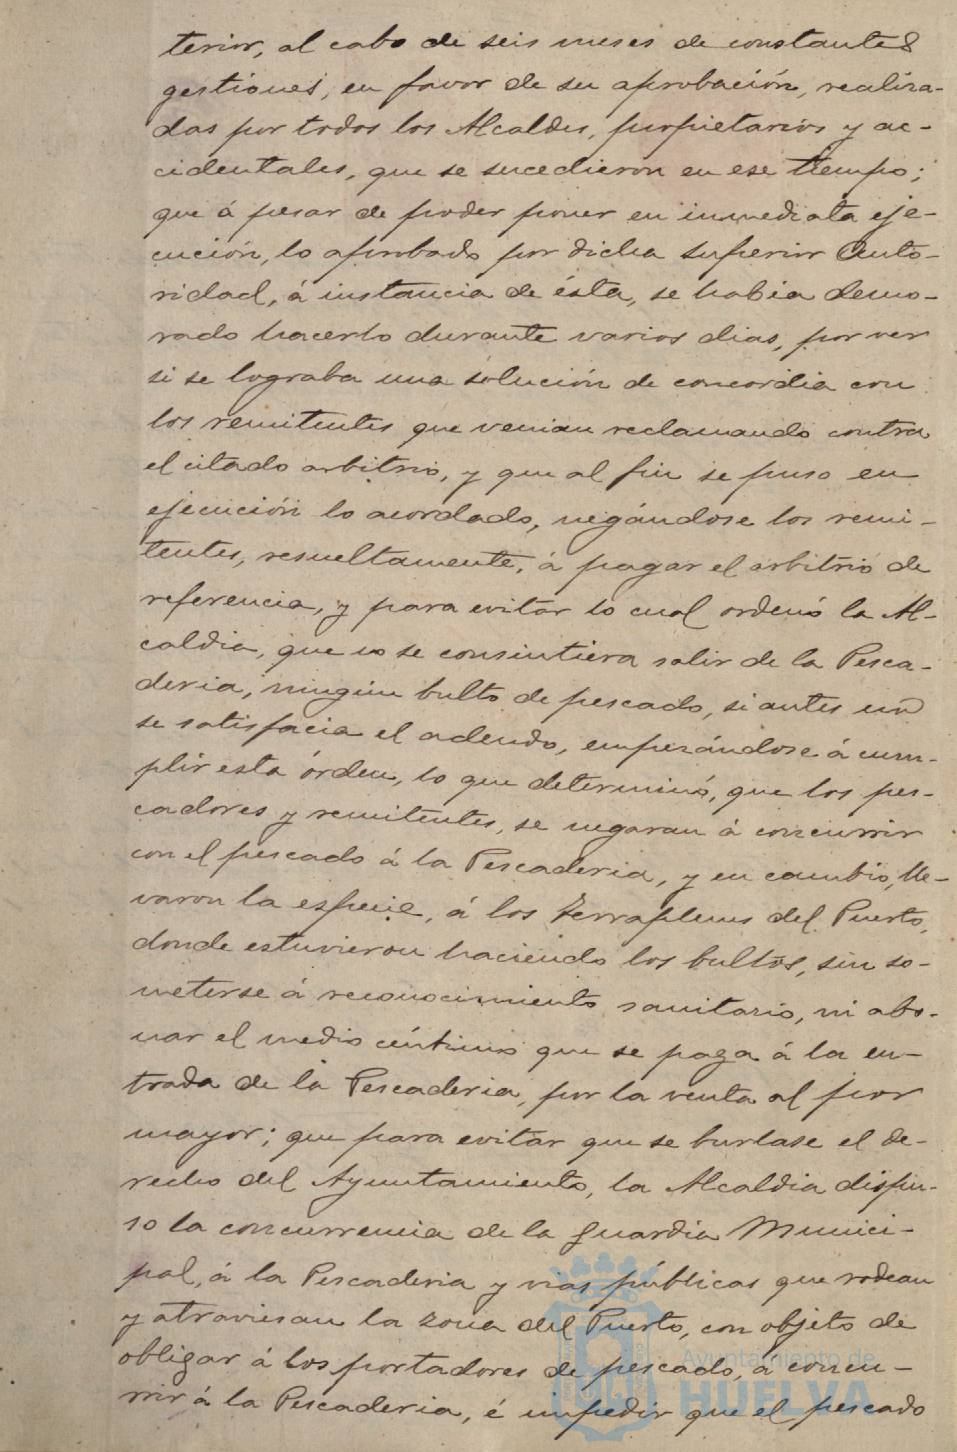 terior, al cabo de seis meses de constantes
gestiones, en favor de su aprobación, realiza-
das por todos los Alcaldes, propietarios y ac-
cidentales, que se sucedieron en ese tiempo;
que á pesar de poder poner en inmediata eje-
cución, lo aprobado por dicha superior Auto-
ridad, á instancia de ésta, se habia demo-
rado hacerlo durante varios dias, por ver
si se lograba una solución de concordia con
los remitentes que venian reclamando contra
el citado arbitrio, y que al fin se puso en
ejecución lo acordado, negándose los remi-
tentes, resueltamente, á pagar el arbitrio de
referencia, y para evitar lo cual ordenó la Al-
caldia, que no se consintiera salir de la Pesca-
deria, ningún bulto de pescado, si antes no
se satisfacia el adeudo, empezándose á cum-
plir esta órden, lo que determinó, que los pes-
cadores y remitentes, se negaran á concurrir
con el pescado á la Pescaderia, y en cambio, lle-
varon la especie, á los terraplenes del Puerto,
donde estuvieron haciendo los bultos, sin so-
meterse á reconocimiento sanitario, ni abo-
nar el medio céntimo que se paga á la en-
trada de la Pescaderia, por la venta al por
mayor; que para evitar que se burlase el de-
recho del Ayuntamiento, la Alcaldia dispu-
so la concurrencia de la Guardia Munici-
pal, á la Pescaderia y vias públicas que rodean
y atraviesan la zona del Puerto, con objeto de
obligar á los portadores de pescado, á concu-
rrir á la Pescaderia, é impedir que el pescado
Ayuntamiento de
HUELVA